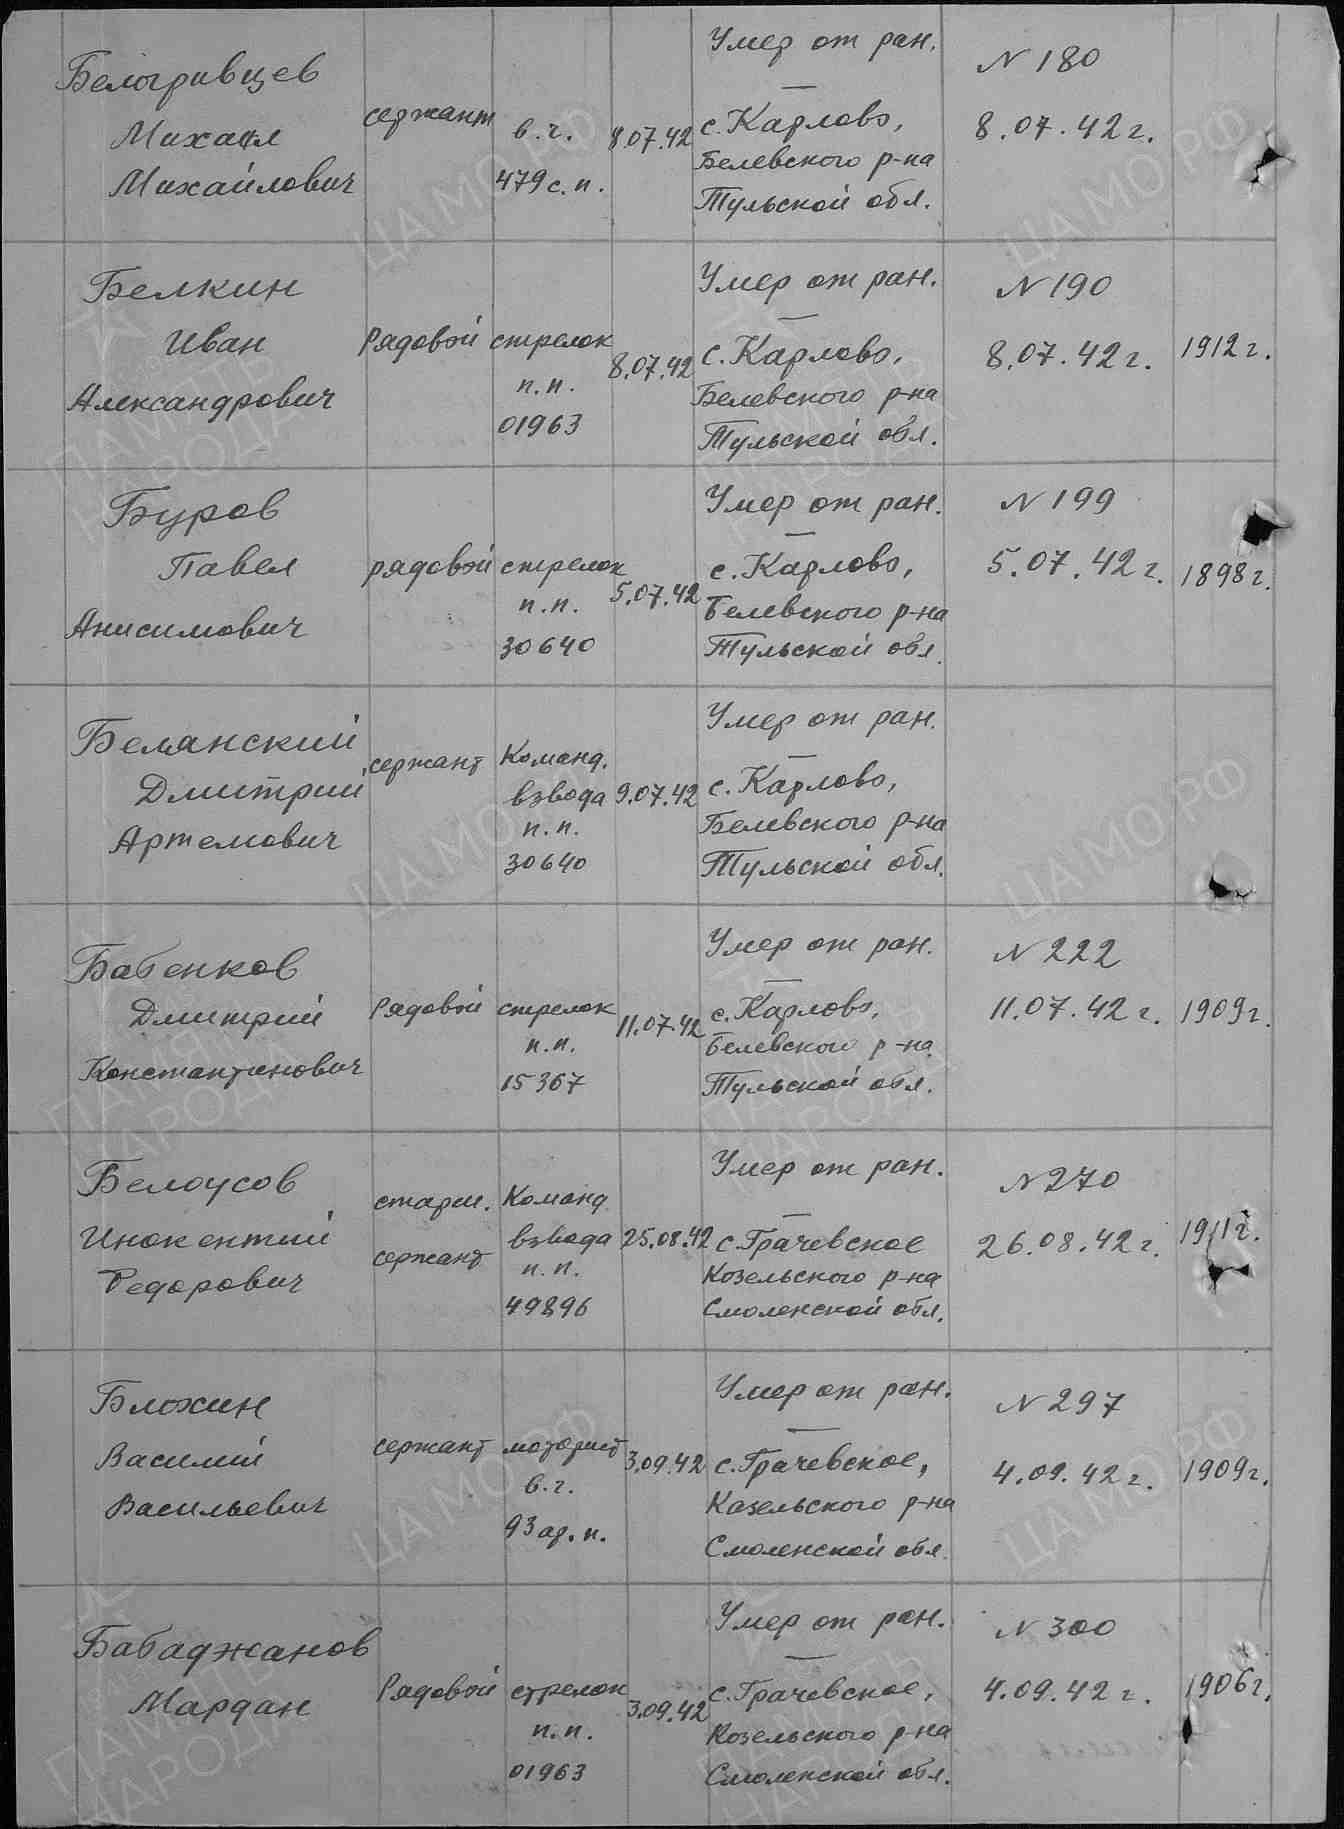 Белогривцев
Михаил
Михайлович
сержант
в.ч.
479 с.п.
8.07.42
Умер от ран.
с. Карлово,
Белевского р-на
Тульской обл.
N 180
8.07.42 г.
Белкин
Иван
Александрович
Рядовой
стрелок
п.п.
01963
8.07.42
Умер от ран.
с. Карлово,
Белевского р-на
Тульской обл.
N 190
8.07.42 г.
1912 г.
Буров
Павел
Анисимович
рядовой
стрелок
п.п.
30640
5.07.42
Умер от ран.
с. Карлово,
Белевского р-на
Тульской обл.
N 199
5.07.42 г.
1898 г.
Белянский
Дмитрий
Артемович
сержант
Команд.
взвода
п.п.
30640
9.07.42
Умер от ран.
с. Карлово,
Белевского р-на
Тульской обл.
Бабенков
Дмитрий
Константинович
Рядовой
стрелок
п.п.
15367
11.07.42
Умер от ран.
с. Карлово,
Белевского р-на
Тульской обл.
N 222
11.07.42 г.
1909 г.
Белоусов
Инокентий
Федорович
старш.
сержант
Команд
взвода
п.п.
49896
25.08.42
Умер от ран.
с. Грачевское
Козельского р-на
Смоленской обл.
N 270
26.08.42 г.
1911 г.
Блохин
Василий
Васильевич
сержант
моторист
в.г.
93 ар. п.
3.09.42
Умер от ран.
с. Грачевское,
Казельского р-на
Смоленской обл.
N 297
4.09.42 г.
1909 г.
Бабаджанов
Мардан
Рядовой
стрелок
п.п.
01963
3.09.42
Умер от ран.
с. Грачевское,
Козельского р-на
Смоленской обл.
N 300
4.09.42 г.
1906 г.
ЦА МО РФ
ПАМЯТЬ
НАРОДА